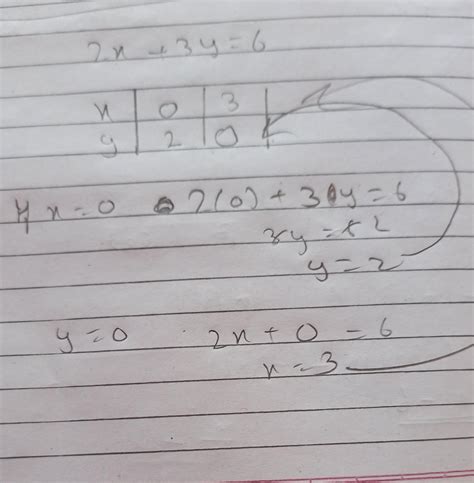 2x + 3y = 6
x | 0 | 3
y | 2 | 0
x = 0 2(0) + 3y = 6
3y = 6 2
y = 2
y = 0 2x + 0 = 6
x = 3